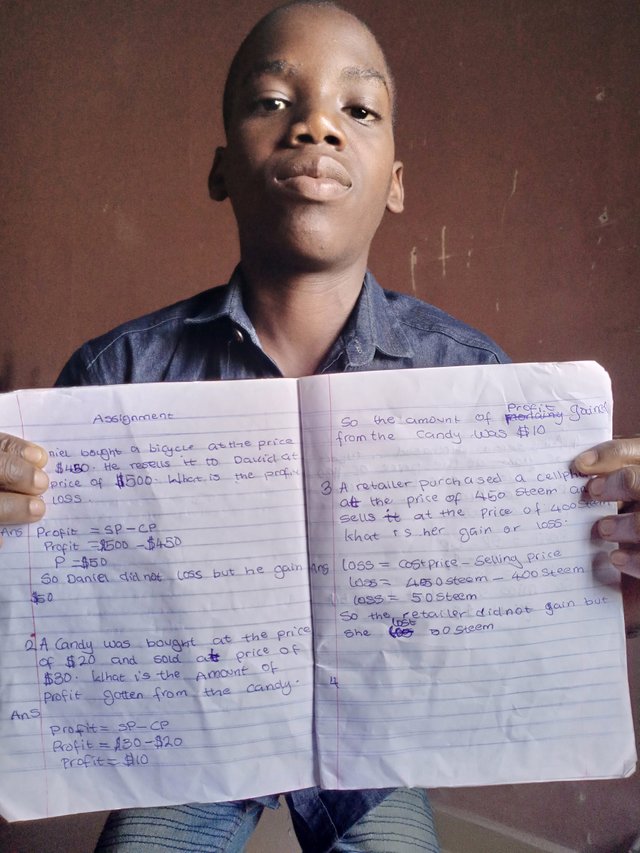 Assignment
niel bought a bicycle at the price
$450. He resells it to David at
price of $500. What is the profit
Loss.
Ans Profit = SP-CP
Profit = $500 - $450
P = $50
So Daniel did not loss but he gain
$50
2. A Candy was bought at the price
of $20 and sold at price of
$30. What is the Amount of
Profit gotten from the candy.
Ans
Profit = SP-CP
Profit = $30-$20
Profit = $10
So the amount of Profit gained
from the Candy was $10
3 A retailer purchased a cellph
at the price of 450 steem an
sells it at the price of 400 steem
What is her gain or loss.
Ans Loss = cost price - Selling Price
Loss = 450 steem - 400 steem
Loss = 50 steem
So the retailer did not gain but
she lost 50 steem
4